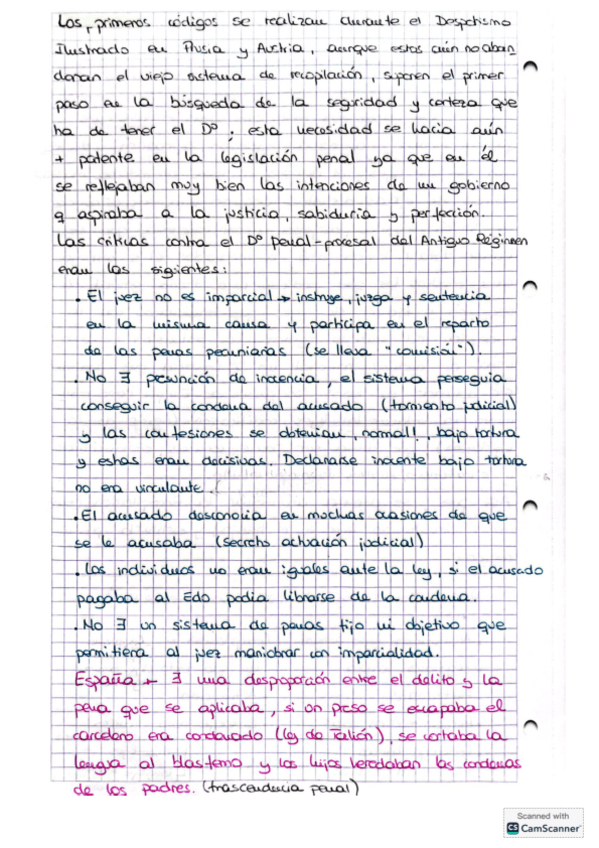 Los, primeros códigos se realizan durante el Despotismo
Ilustrado en Prusia y Austria, aunque estos aún no aban
donan el viejo sistema de recopilación, suponen el primer
paso en la búsqueda de la seguridad y certeza que
ha de tener el Dº, esta necesidad se hacia aún
+ patente en la legislación penal ya que en él
se reflejaban muy bien las intenciones de un gobierno
q aspiraba a la justicia, sabiduria y perfección.
Las criticas contra el Dº penal-procesal del Antiguo Régimen
eran las siguientes:
. El juez no es imparcial → instruye, juzga y sentencia
en la misma causa y participa en el reparto
de las penas pecuniarias (se lleva "comisión").
. No ∃ presunción de inocencia, el sistema perseguia
conseguir la condena del acusado (tormento judicial)
y las confesiones se obtenian, normal!!, bajo tortura
y estas eran decisivas. Declararse inocente bajo tortura
no era vinculante.
. El acusado desconocia en muchas ocasiones de que
se le acusaba (secreto actuación judicial)
. Los individuos no eran iguales ante la ley, si el acusado
pagaba al Edo podia librarse de la condena.
. No ∃ un sistema de penas fijo ni objetivo que
permitiera al juez maniobrar con imparcialidad.
España → ∃ una desproporción entre el delito y la
pena que se aplicaba, si un preso se escapaba el
carcelero era condenado (ley de Talión), se cortaba la
lengua al blasfemo y los hijos heredaban las condenas
de los padres. (trascendencia penal)
Scanned with
CS CamScanner